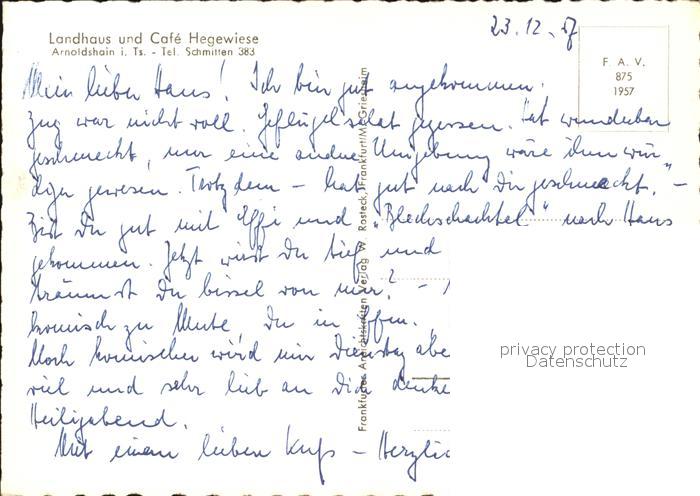 Landhaus und Café Hegewiese
Arnoldshain i. Ts. - Tel. Schmitten 383
23. 12. 57
F. A. V.
875
1957
Mein lieber Hans! Ich bin gut angekommen.
Zug war nicht voll. Geflügelsalat gegessen. Hat wunderbar
geschmeckt, nur eine andere Umgebung wäre ihm wür-
diger gewesen. Trotzdem – hat gut nach Dir geschmeckt. –
Bist Du gut mit Effi und „Blechschachtel“ nach Haus
gekommen. Jetzt wirst Du tief und
träumst Du bissel von mir? –
komisch zu Mute, Du in
Noch komischer wird mir Dienstag abe
viel und sehr lieb an Dich denke
Heiligabend.
Mit einem lieben Kuß – Herzlic
Frankfurter Ansichtskarten Verlag W. Rosteck, Frankfurt/M.-Griesheim
privacy protection
Datenschutz